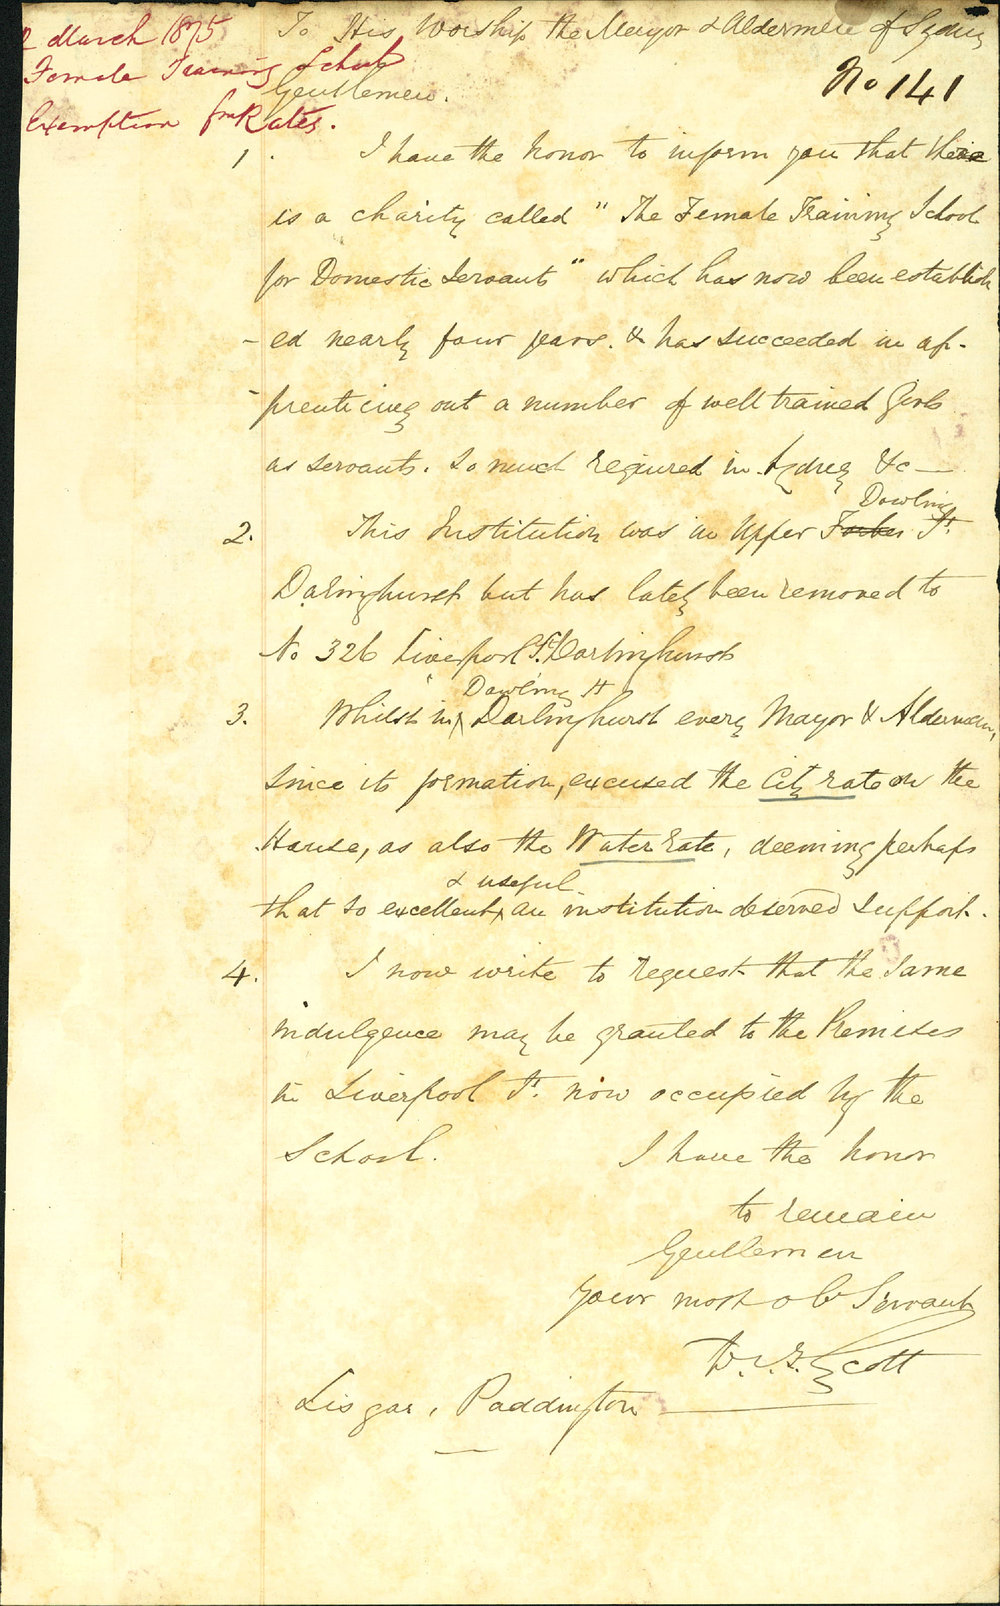 2 March 1875
Female Training School
Exemption fm Rates.
To His Worship the Mayor & Aldermen of Sydney
No 141
Gentlemen.
1. I have the honor to inform you that there
is a charity called "The Female Training School
for Domestic Servants" which has now been establish
-ed nearly four years. & has succeeded in ap-
-prenticing out a number of well trained Girls
as servants. so much required in Sydney &c —
Dowling
2. This Institution was in Upper Forbes St.
Darlinghurst but has lately been removed to
No 326 Liverpool St. Darlinghurst
Dowling St
3. Whilst in Darlinghurst every Mayor & Alderman,
since its formation, excused the City rate on the
House, as also the Water rate, deeming perhaps
& useful
that so excellent an institution deserved support.
4. I now write to request that the same
indulgence may be granted to the Premises
in Liverpool St. now occupied by the
School. I have the honor
to remain
Gentlemen
your most obt Servant
Scott
Lisgar, Paddington